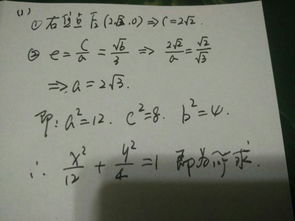 (1)
① 右焦点 F₂(2√2,0) ⇒ C=2√2.
② e = c/a = √6/3 ⇒ 2√2/a = √2/√3
⇒ a = 2√3.
即: a²=12. c²=8. b²=4.
∴ x²/12 + y²/4 = 1 即为所求.